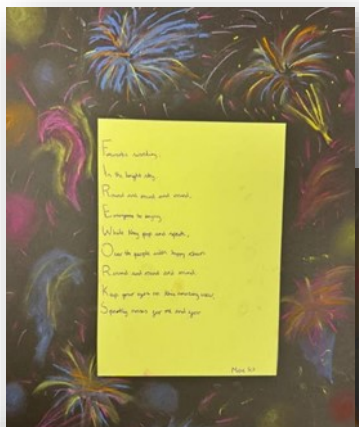 Fireworks swirling,
In the bright sky,
Round and round and round,
Everyone is enjoy
While they pop and squeak,
Over the people with happy
Round and round and round,
Keep your eyes on this amazing view,
Sparkly noises for me and you